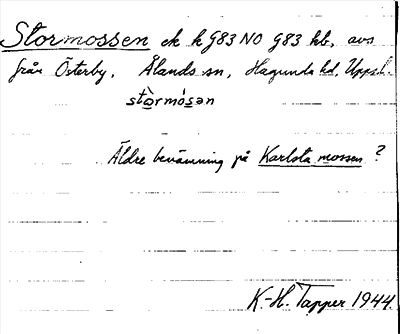 Stormossen ek k g83 NO g83 hb, avs
från Österby, Ålands sn, Hagunda hd, Uppsl.
stòrmósən
Äldre benämning på Karlsta mossen?
K.-H. Tapper 1944.